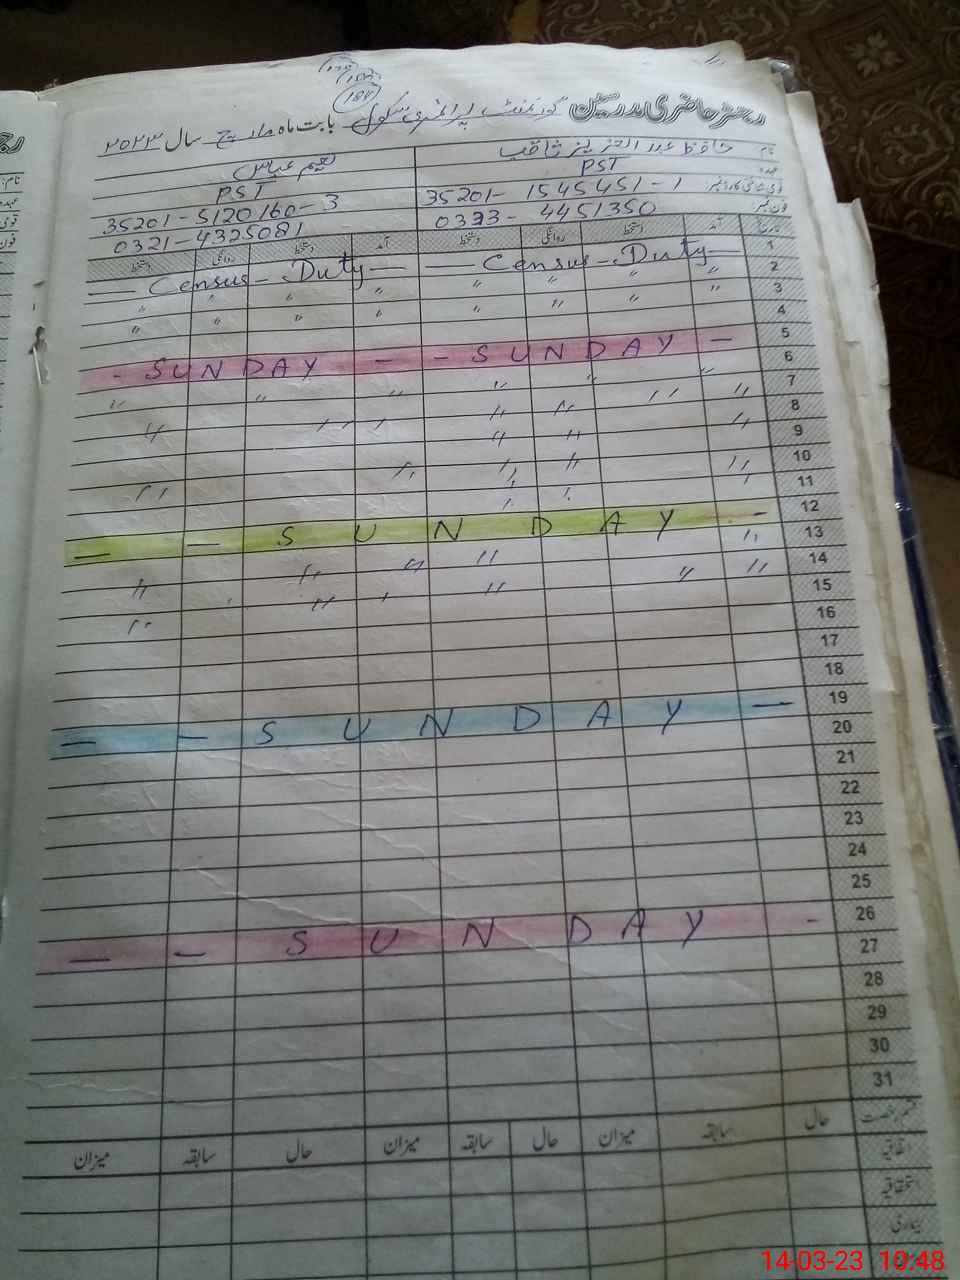 رجسٹر حاضری مدرسین گورنمنٹ پرائمری سکول بابت ماہ مارچ سال ۲۰۲۳
187
نام حافظ عبد العزیز ثاقب نعیم عباس
عہدہ PST PST
قومی شناختی کارڈ نمبر: 35201-1545451-1 35201-5120160-3
فون نمبر: 0333-4451350 0321-4325081
تاریخ آمد دستخط روانگی دستخط آمد دستخط روانگی دستخط
1 — Census - Duty — — Census - Duty —
2 〃 〃 〃 〃 〃 〃 〃 〃
3 〃 〃 〃 〃 〃 〃 〃 〃
4
5 - SUNDAY - - SUNDAY -
6 〃 〃 〃 〃 〃 〃
7 〃 〃 〃 〃 〃 〃
8 〃 〃 〃
9
10 〃 〃 〃 〃 〃
11
12 — — SUNDAY —
13 〃 〃 〃 〃 〃
14 〃 〃 〃 〃 〃 〃
15
16
17
18
19 — — SUNDAY —
20
21
22
23
24
25
26 — — SUNDAY -
27
28
29
30
31
قسم رخصت حال سابقہ میزان حال سابقہ میزان حال سابقہ میزان
اتفاقیہ
استحقاقیہ
بیماری
14-03-23 10:48